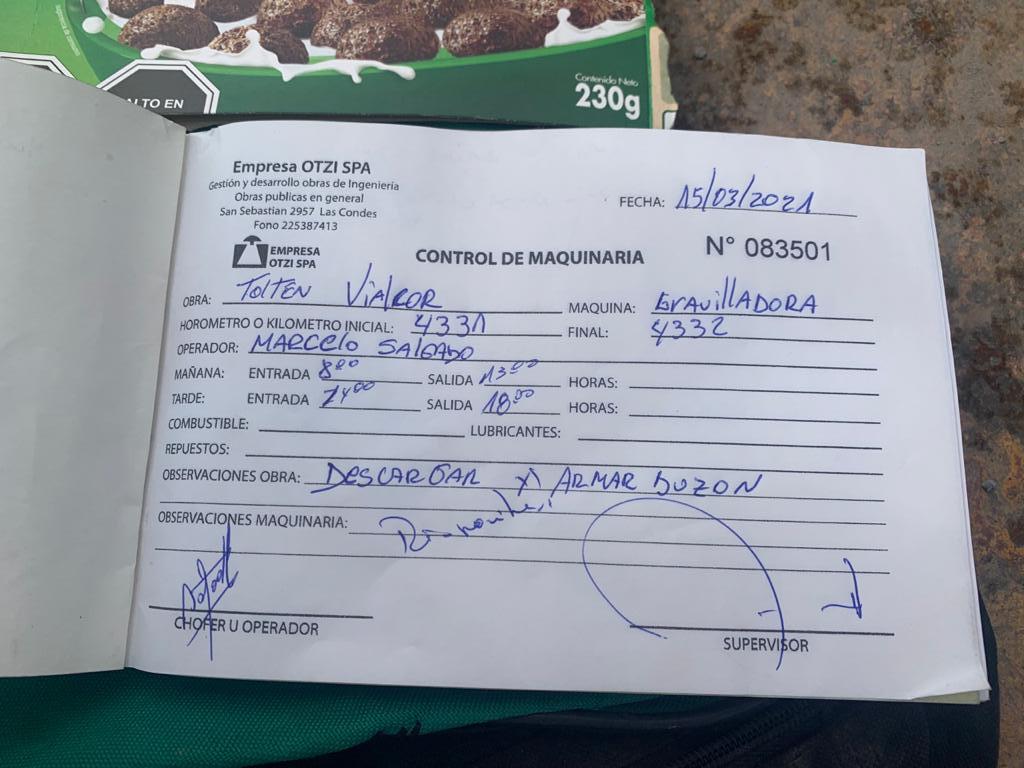 ALTO EN
Contenido Neto
230g
Empresa OTZI SPA
Gestión y desarrollo obras de Ingenieria
Obras publicas en general
San Sebastian 2957 Las Condes
Fono 225387413
FECHA: 15/03/2021
EMPRESA
OTZI SPA
CONTROL DE MAQUINARIA
N° 083501
OBRA: TOLTEN VialCOR MAQUINA: GravillADORA
HOROMETRO O KILOMETRO INICIAL: 4331 FINAL: 4332
OPERADOR: MARCELO SALGADO
MAÑANA: ENTRADA 8:00 SALIDA 13:00 HORAS:
TARDE: ENTRADA 14:00 SALIDA 18:00 HORAS:
COMBUSTIBLE: LUBRICANTES:
REPUESTOS:
OBSERVACIONES OBRA: DESCARGAR Y ARMAR BUZON
OBSERVACIONES MAQUINARIA:
CHOFER U OPERADOR
SUPERVISOR